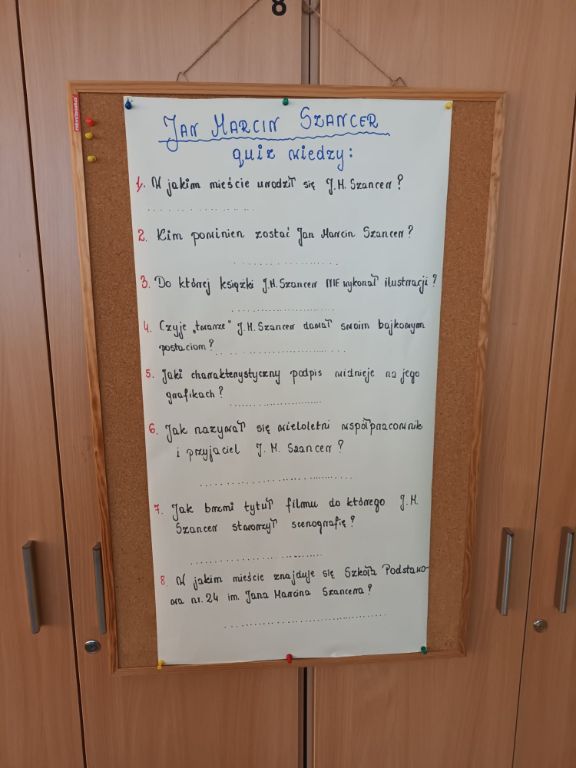 8
JAN MARCIN SZANCER
quiz wiedzy:
1. W jakim mieście urodził się J.M. Szancer?
2. Kim powinien zostać Jan Marcin Szancer?
3. Do której książki J.M. Szancer NIE wykonał ilustracji?
4. Czyje „twarze” J.M. Szancer dawał swoim bajkowym
postaciom?
5. Jaki charakterystyczny podpis widnieje na jego
grafikach?
6. Jak nazywał się wieloletni współpracownik
i przyjaciel J. M. Szancer?
7. Jak brzmi tytuł filmu do którego J.M.
Szancer stworzył scenografię?
8 W jakim mieście znajduje się Szkoła Podstawo-
wa nr. 24 im. Jana Marcina Szancera?